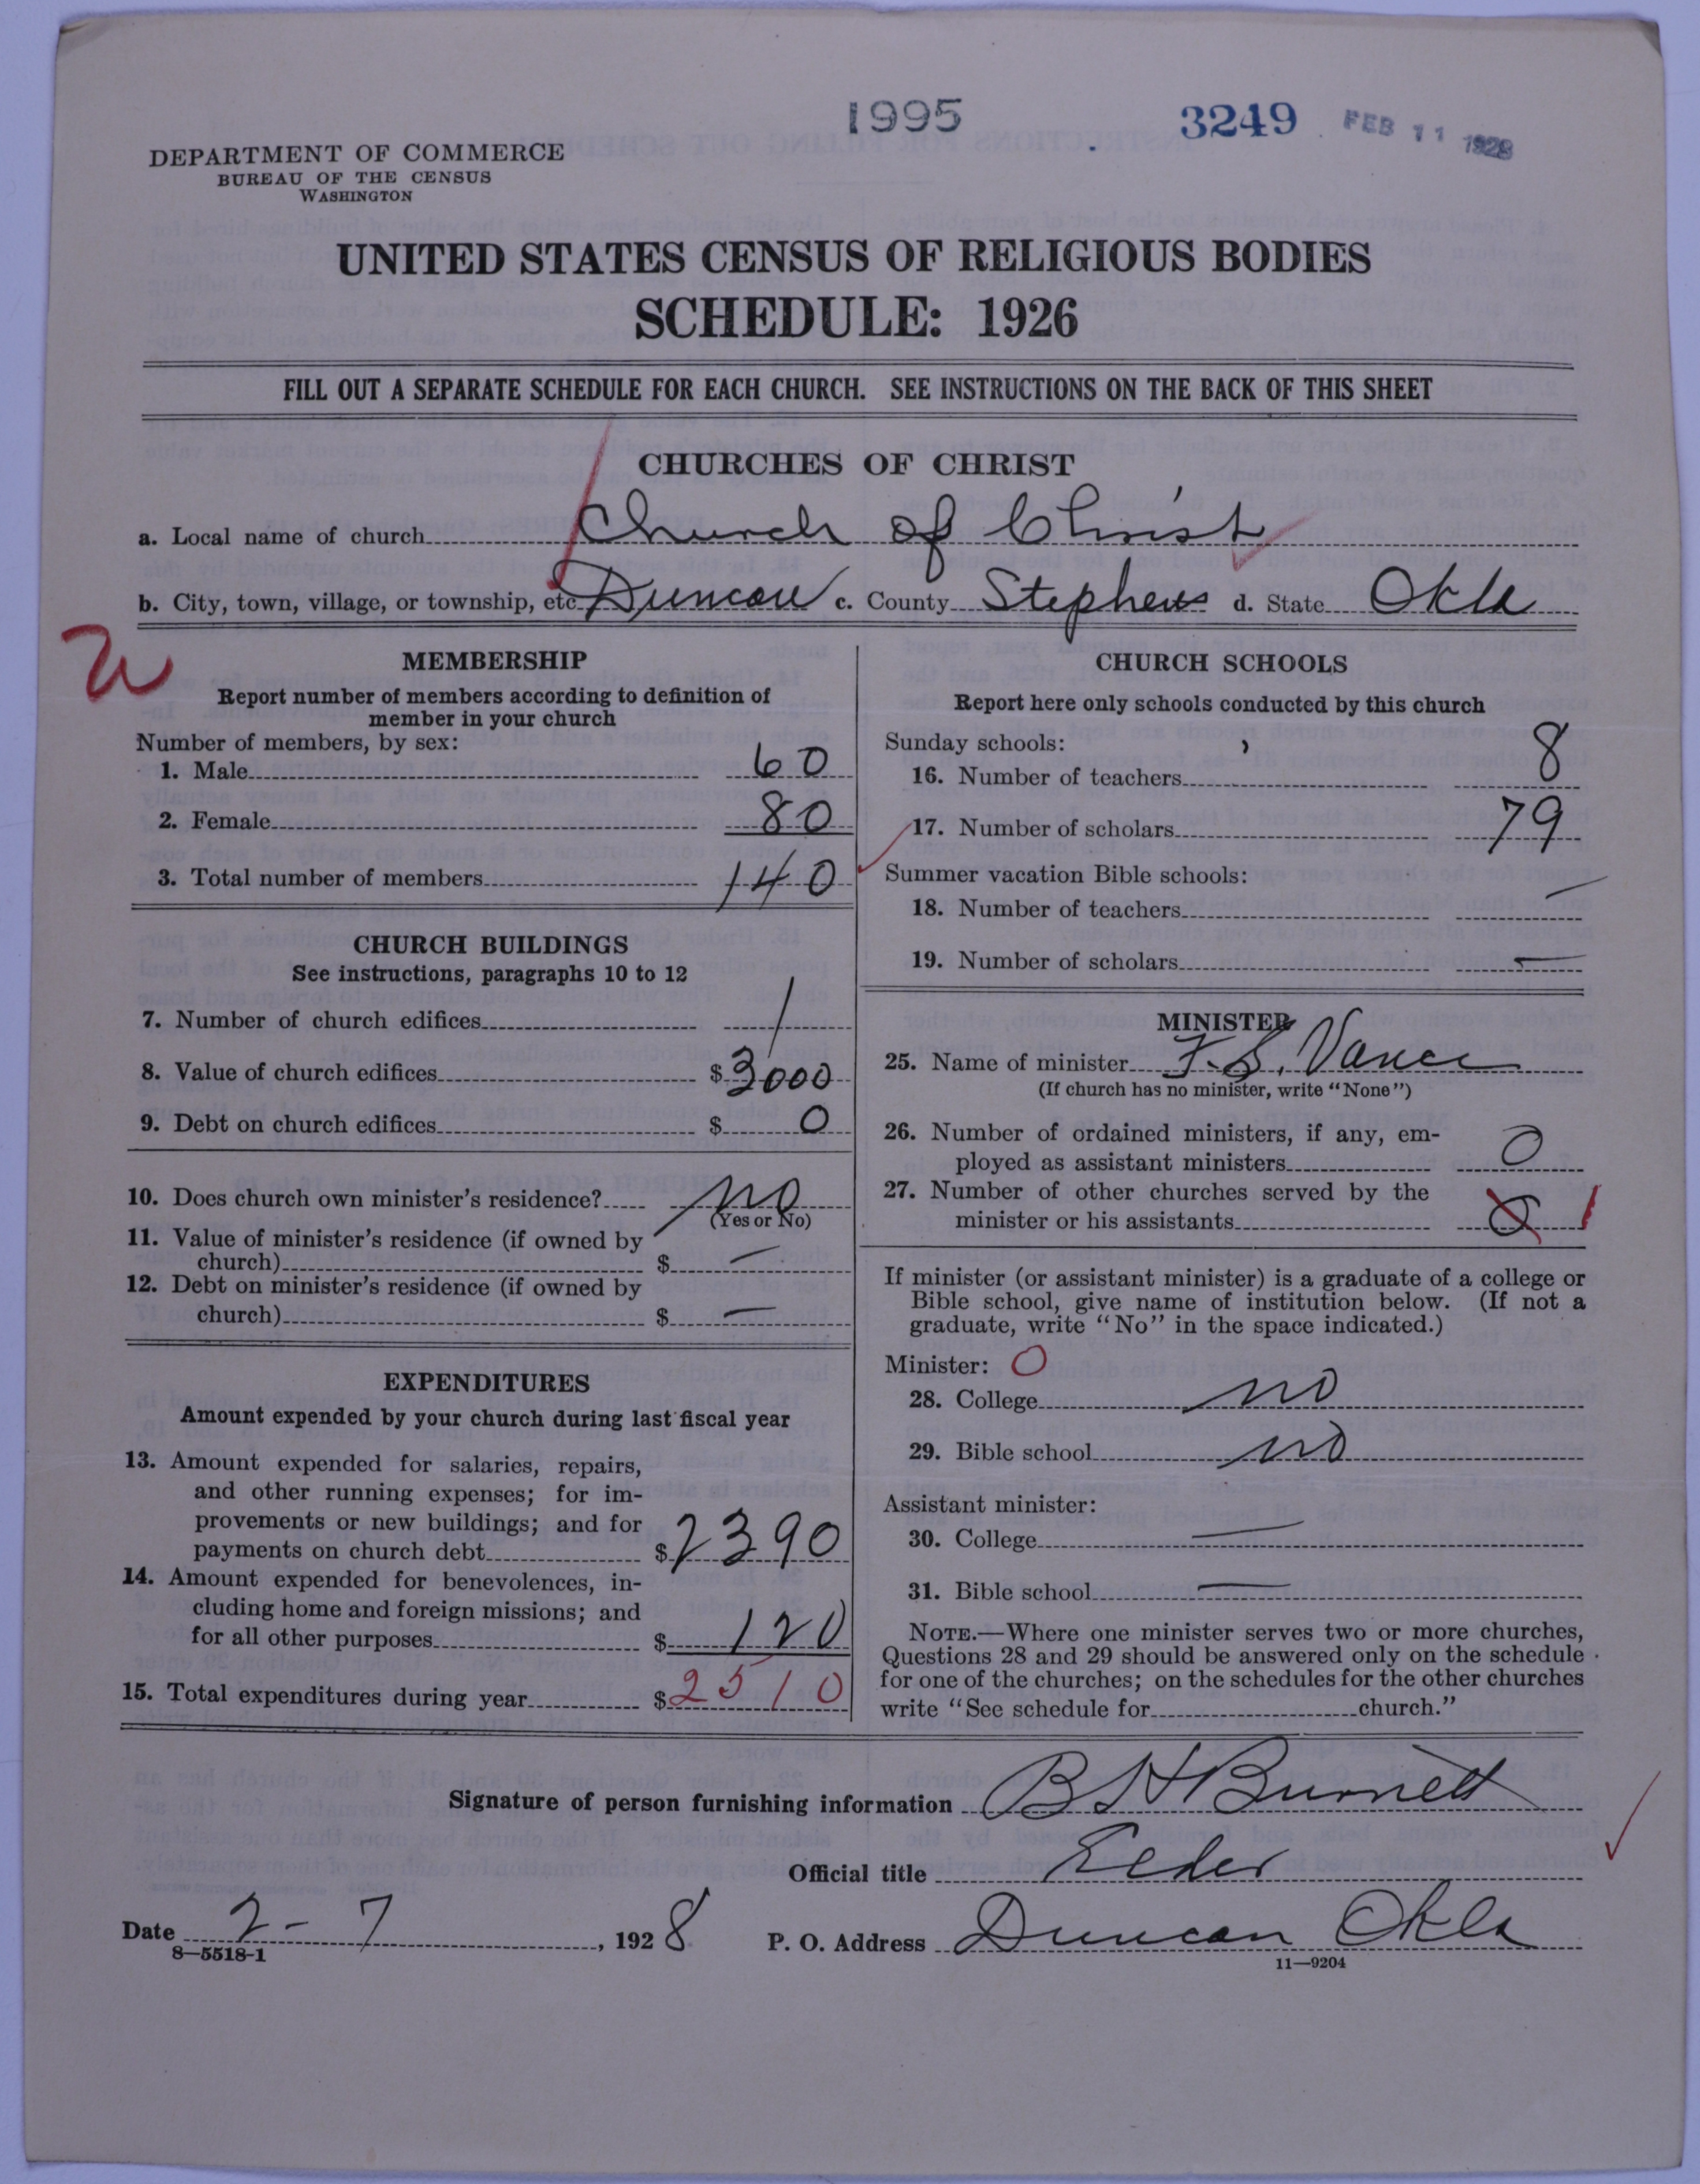 1995 3249 FEB 11 1928
DEPARTMENT OF COMMERCE
BUREAU OF THE CENSUS
WASHINGTON
UNITED STATES CENSUS OF RELIGIOUS BODIES
SCHEDULE: 1926
FILL OUT A SEPARATE SCHEDULE FOR EACH CHURCH. SEE INSTRUCTIONS ON THE BACK OF THIS SHEET
CHURCHES OF CHRIST
a. Local name of church Church of Christ
b. City, town, village, or township, etc. Duncan c. County Stephens d. State Okla
MEMBERSHIP
Report number of members according to definition of
member in your church
Number of members, by sex:
1. Male 60
2. Female 80
3. Total number of members 140
CHURCH BUILDINGS
See instructions, paragraphs 10 to 12
7. Number of church edifices 1
8. Value of church edifices $ 3000
9. Debt on church edifices $ 0
10. Does church own minister's residence? no
(Yes or No)
11. Value of minister's residence (if owned by
church) $ —
12. Debt on minister's residence (if owned by
church) $ —
EXPENDITURES
Amount expended by your church during last fiscal year
13. Amount expended for salaries, repairs,
and other running expenses; for im-
provements or new buildings; and for
payments on church debt $ 2390
14. Amount expended for benevolences, in-
cluding home and foreign missions; and
for all other purposes $ 120
15. Total expenditures during year $ 2510
CHURCH SCHOOLS
Report here only schools conducted by this church
Sunday schools:
16. Number of teachers 8
17. Number of scholars 79
Summer vacation Bible schools:
18. Number of teachers —
19. Number of scholars —
MINISTER
25. Name of minister F. L. Vance
(If church has no minister, write "None")
26. Number of ordained ministers, if any, em-
ployed as assistant ministers 0
27. Number of other churches served by the
minister or his assistants 0 1
If minister (or assistant minister) is a graduate of a college or
Bible school, give name of institution below. (If not a
graduate, write "No" in the space indicated.)
Minister: 0
28. College no
29. Bible school no
Assistant minister:
30. College —
31. Bible school —
NOTE.—Where one minister serves two or more churches,
Questions 28 and 29 should be answered only on the schedule
for one of the churches; on the schedules for the other churches
write "See schedule for church."
Signature of person furnishing information B H Burnett
Official title Elder
Date 2 - 7, 1928 P. O. Address Duncan Okla
8—5518-1 11—9204